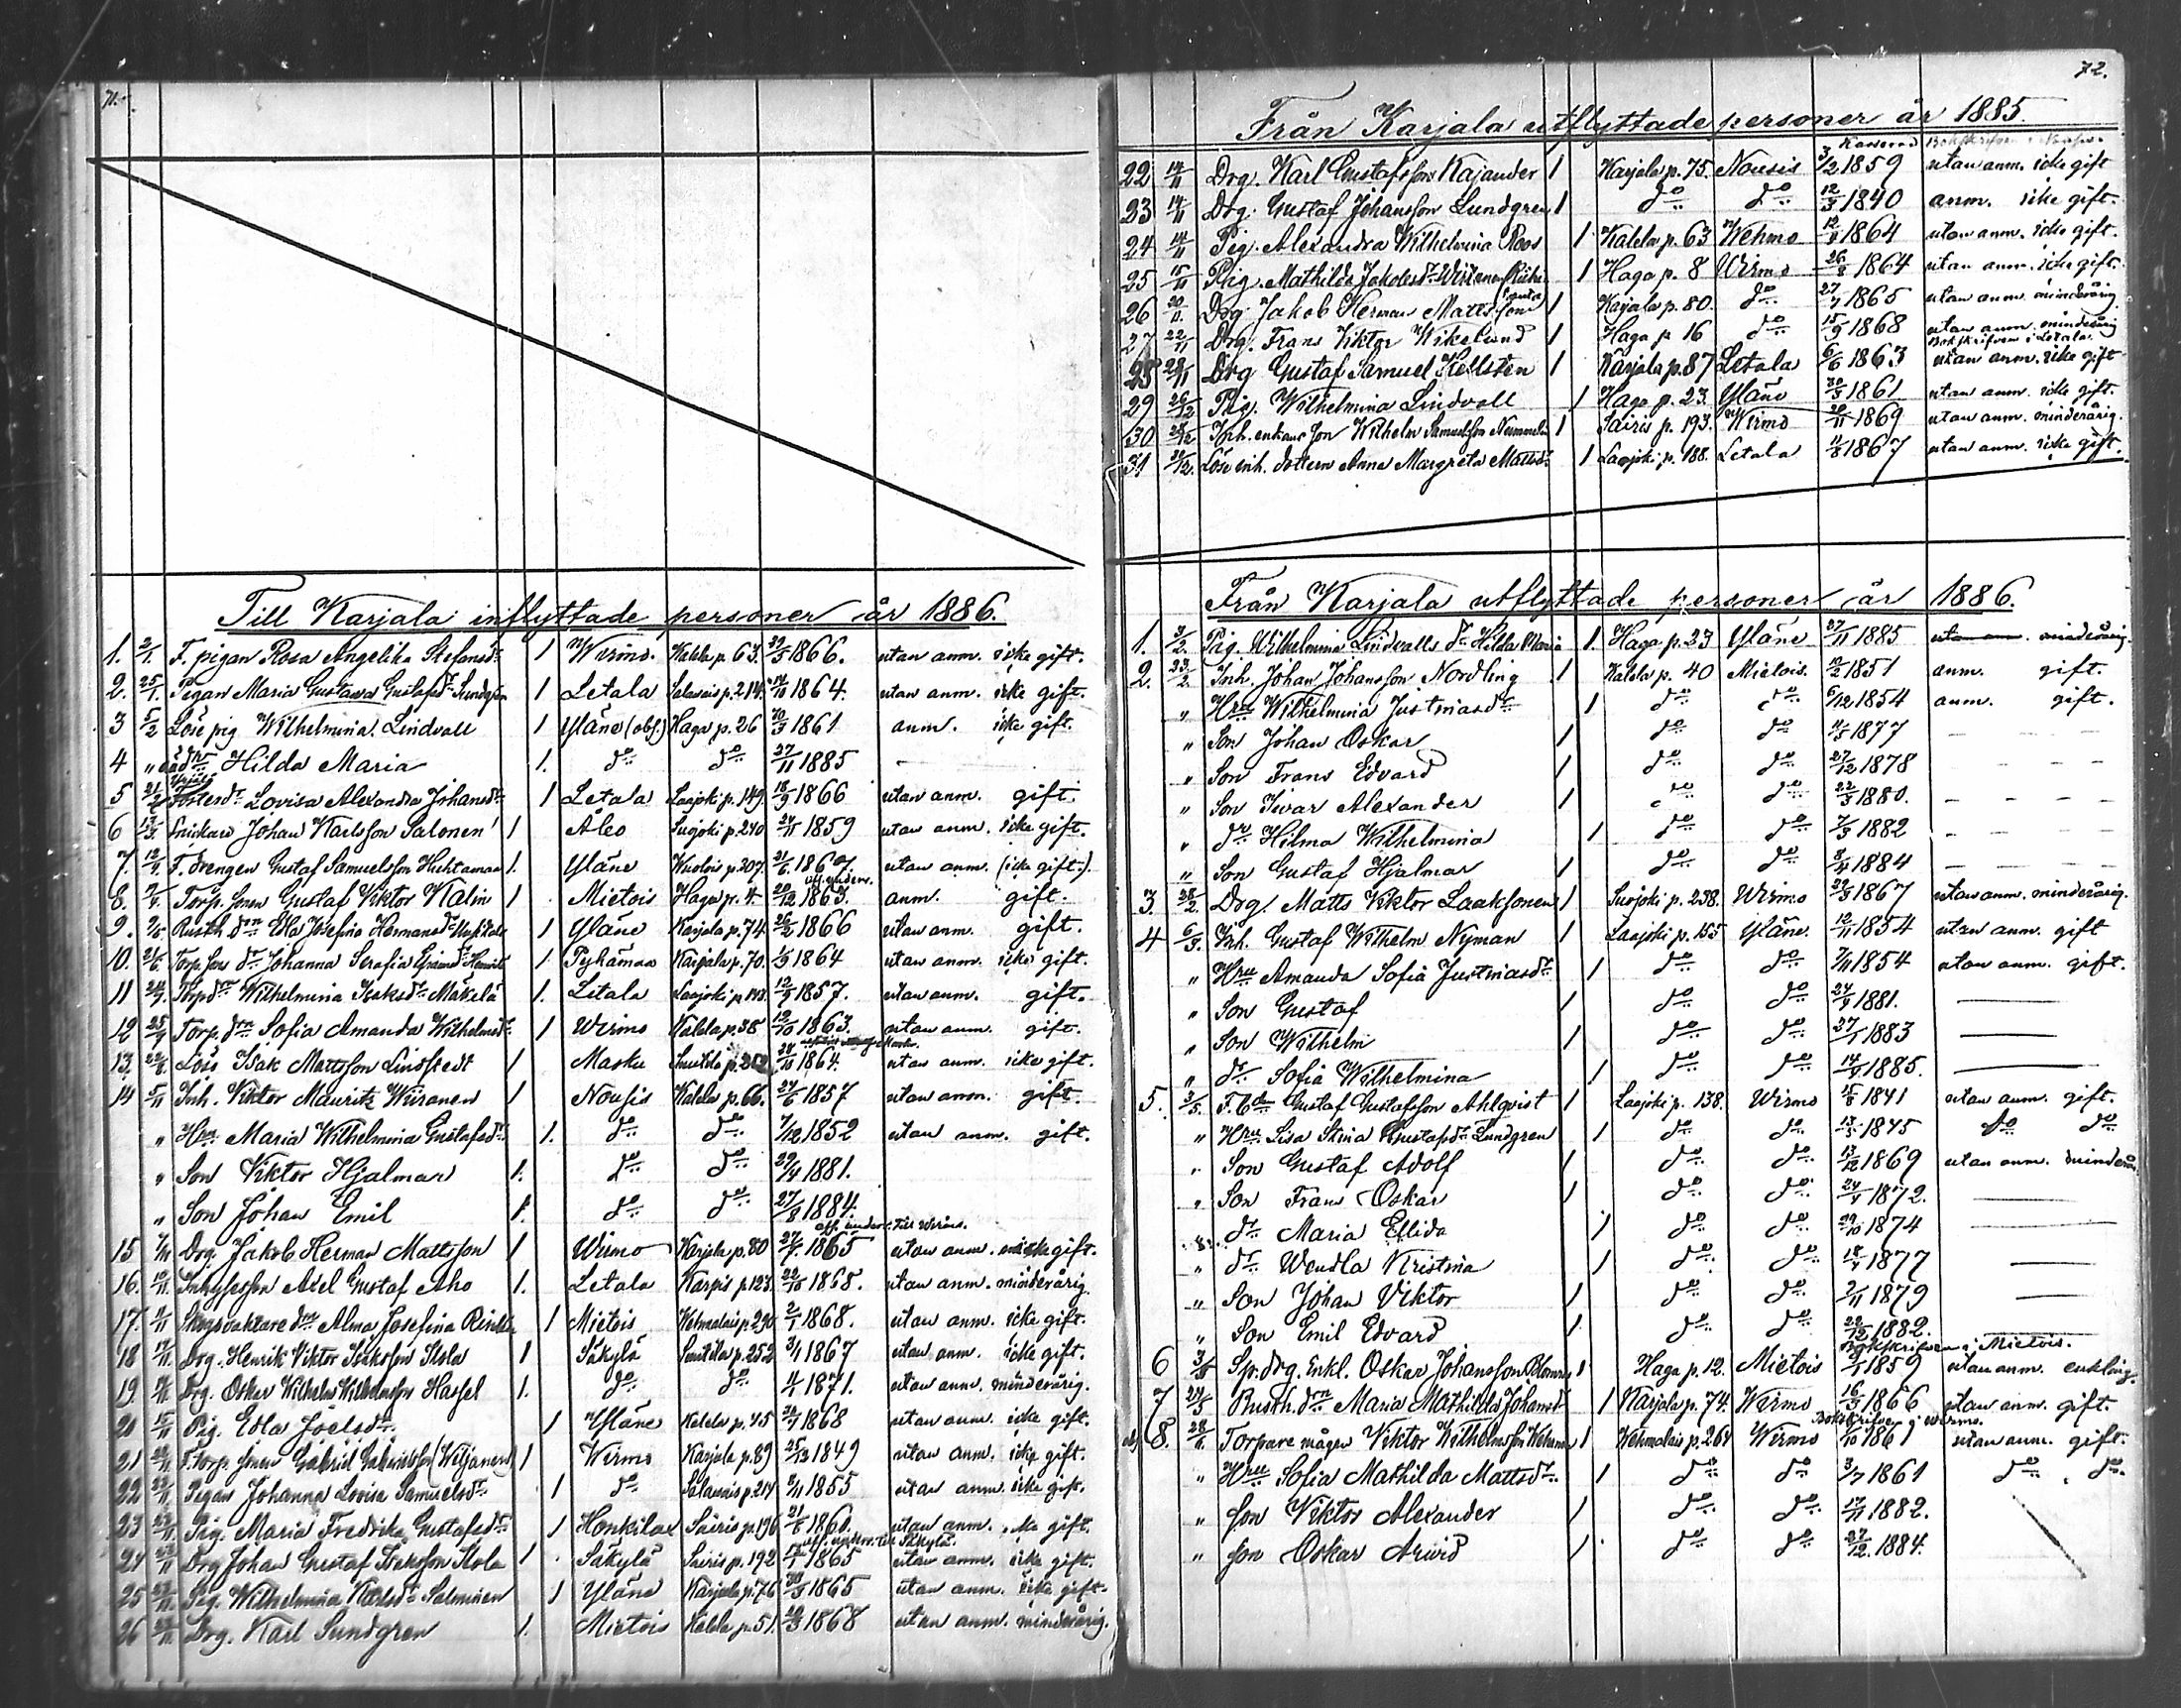 71.
Till Karjala inflyttade personer år 1886.
1. 2/1. F. pigan Rosa Angelika Stefansdr 1 Wirmo. Kalela p. 63. 1866. utan anm. icke gift.
2. 25/1. Pigan Maria Gustava Gustafsdr Lundgren 1 Letala Salavais p. 214. 14/10 1864. utan anm. icke gift.
3 5/2 Löse pig Wilhelmina Lindvall 1 Yläne (obs.) Haga p. 26 30/3 1861 anm. icke gift.
4 " oä dr Hilda Maria 1. do do 27/11 1885 —
5 Fosterdr Lovisa Alexandra Johansdr 1 Letala Laajoki p. 149. 18/9 1866 utan anm. gift.
6 13/3 Snickare Johan Karlsson Salonen 1 Åbo Suojoki p. 240 24/11 1859 utan anm. icke gift.
7. 12/4. F. drengen Gustaf Samuelsson Huhtamaa 1. Yläne p. 307. 21/6 1867. utan anm. (icke gift.)
8. Torp. sonen Gustaf Viktor Kalin 1 Mietois Haga p. 4. 20/12 1863. anm. gift.
9. Rusth. drn Edla Josefina Hermansdr 1 Yläne Karjala p. 74 26/2 1866 utan anm. gift.
10. 21/6. Torp. sons dr Johanna Serafia 1. Pyhämaa Karjala p. 70. 1864 utan anm. icke gift.
11 24/7. Torp drn Wilhelmina Isaksdr Mäkelä 1. Letala Laajoki p. 143. 12/9 1857. utan anm. gift.
12 25/7 Torp. drn Sofia Amanda Wilhelmsdr 1 Wirmo Kalela p. 38 12/10 1863. utan anm. gift.
13. 22/8. Löse Isak Mattsson Lindstedt 1 Masku p. 252 24/10 1864. utan anm. icke gift.
14 5/11 Inh. Viktor Mauritz Wiiranen 1 Nousis Kalela p. 66. 24/6 1857 utan anm. gift.
" Hru Maria Wilhelmina Gustafsdr 1. do do 7/12 1852 utan anm. gift.
" Son Viktor Hjalmar 1. do do 29/4 1881.
" Son Johan Emil 1. do do 27/8 1884.
15 7/11 Drg. Jakob Herman Mattsson 1 Wirmo Karjala p. 80 27/7. 1865 utan anm. icke gift.
16. 10/11. Inhysesson Axel Gustaf Aho 1. Letala p. 123. 22/10 1868. utan anm. minderårig.
17. 11/11 Skogvaktare drn Alma Josefina 1 Mietois Wehmalais p. 290 2/1 1868. utan anm. icke gift.
18 12/11 Drg. Henrik Viktor Isaksson Skola 1 Säkylä p. 252 3/1 1867 utan anm. icke gift.
19. Drg. Oskar Wilhelm Wilhelmsson Hassel 1. do do 4/1 1871. utan anm. minderårig.
20 15/11 Pig. Edla Joelsdr 1 Yläne Kalela p. 45 1868 utan anm. icke gift.
21 F. Torp. sonen Gabriel Gabrielsson (Wiljanen) 1 Wirmo Karjala p. 89 25/12 1849 utan anm. icke gift.
22 22/11 Pigan Johanna Lovisa Samuelsdr 1 do Salavais p. 214 1855 utan anm. icke gift.
23 22/11. Pig. Maria Fredrika Gustafsdr 1 Honkilax Sairis p. 196 21/8 1860. utan anm. icke gift.
24 22/11 Drg Johan Gustaf Isaksson Skola 1 Säkylä Sairis p. 192 1865 utan anm. icke gift.
25 22/11. Pig. Wilhelmina Karlsdr Salminen 1 Yläne Karjala p. 76 30/5 1865 utan anm. icke gift.
26 Drg. Karl Sundgren 1. Mietois Kalela p. 51. 1868 utan anm. minderårig.
72.
Från Karjala utflyttade personer år 1885.
22 14/11 Drg. Karl Gustafsson Kajander 1 Karjala p. 75. Nousis 3/2 1859 utan anm. icke gift
23 14/11 Drg. Gustaf Johansson Lundgren 1 do do 12/3 1840 anm. icke gift.
24 14/11 Pig. Alexandra Wilhelmina Roos 1 Kalela p. 63 Wehmo 1864 utan anm. icke gift.
25 15/11 Pig. Mathilda Jakobsdr 1 Haga p. 8 Wirmo 26/2 1864 utan anm. icke gift.
26 20/11. Drg. Jakob Herman Mattsson 1 Karjala p. 80. do 27/7 1865 utan anm. minderårig
27 22/11 Drg. Frans Viktor Wikelund 1 Haga p. 16 do 15/9 1868 utan anm. minderårig
Bokskrifven i Letala.
28 28/11 Drg Gustaf Samuel Hellsten 1 Karjala p. 87 Letala 6/6 1863 utan anm. icke gift
29 26/12 Pig. Wilhelmina Lindvall 1 Haga p. 23. Yläne 30/3 1861 utan anm. icke gift.
30 28/12 Inh. enkans son Wilhelm Samuelsson 1 Sairis p. 193. Wirmo 20/11 1869 utan anm. minderårig.
31 30/12. Löse inh. dottern Anna Margreta Mattsdr 1 Laajoki p. 188. Letala 11/8 1867 utan anm. icke gift.
Från Karjala utflyttade personer år 1886.
1. 3/2. Pig. Wilhelmina Lindvalls dr Hilda Maria 1. Haga p. 23 Yläne 27/11 1885 utan anm. minderårig.
2. 23/2. Inh. Johan Johansson Nordling 1 Kalela p. 40 Mietois. 12/2 1851 anm. gift.
" Hru Wilhelmina Justinasdr 1 do do 6/12 1854 anm. gift.
" Son Johan Oskar 1 do do 11/5 1877 — — — —
" Son Frans Edvard 1 do do 27/12 1878 — — — —
" Son Iwar Alexander 1 do do 22/3 1880. — — — —
" dr Hilma Wilhelmina 1 do do 7/3 1882 — — — —
" Son Gustaf Hjalmar 1 do do 8/4 1884 — — — —
3. 28/2. Drg. Matts Viktor Laaksonen 1 Suojoki p. 238. Wirmo 29/3 1867 utan anm. minderårig.
4 6/3. Inh. Gustaf Wilhelm Nyman 1 Laajoki p. 155 Yläne. 12/11 1854 utan anm. gift
" Hru Amanda Sofia Justinasdr 1 do do 7/11 1854 utan anm. gift.
" Son Gustaf 1 do do 24/9 1881. —
" Son Wilhelm 1 do do 27/1 1883 —
" dr Sofia Wilhelmina 1 do do 14/4 1885. —
5. 3/5. Gustaf Gustafsson Ahlqvist 1 Laajoki p. 138. Wirmo 15/8 1841 utan anm. gift.
" Hru Lisa Stina Gustafsdr Lundgren 1 do do 13/5 1845 do do
" Son Gustaf Adolf 1 do do 13/12 1869 utan anm. minderår.
" Son Frans Oskar 1 do do 24/4 1872. —
" dr Maria Ellida 1 do do 29/10 1874 —
" dr Wendla Kristina 1 do do 18/4 1877 —
" Son Johan Viktor 1 do do 2/11 1879 —
" Son Emil Edvard 1 do do 22/12 1882. —
Bokskrifven i Mietois.
6 3/5 Sp. drg. Enkl. Oskar Johansson 1 Haga p. 12. Mietois 1859 utan anm. enkling.
7 24/5 Rusth. drn Maria Mathilda Johansdr 1 Karjala p. 74. Wirmo 16/3 1866 utan anm. gift.
Bokskrifven i Wirmo.
8. 28/6. Torpare mågen Viktor Wilhelmsson 1 Wehmalais p. 264 Wirmo 1861 utan anm. gift.
" Hru Sofia Mathilda Mattsdr 1 do do 3/7 1861 do do
" Son Viktor Alexander 1 do do 17/11 1882.
" Son Oskar Arvid 1 do do 27/12. 1884.